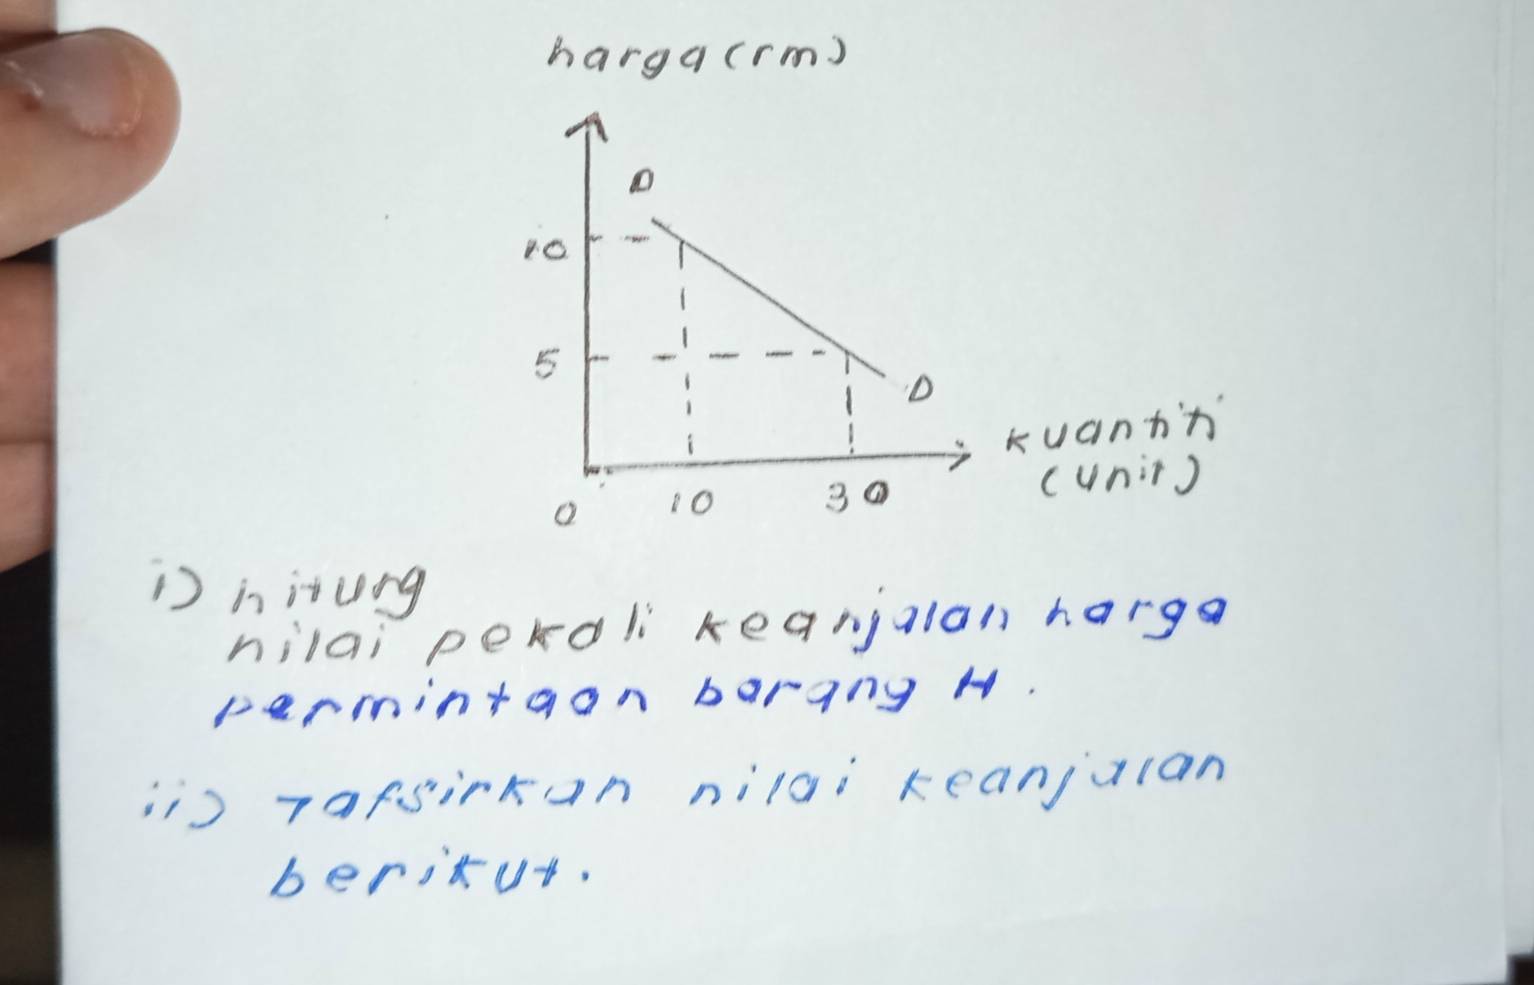 harga (rm)
D
10
5
D
kuantiti
(unit)
0 10 30
i) hitung
nilai pekali keanjalan harga
permintaan barang H.
ii) Tafsirkan nilai keanjalan
berikut.